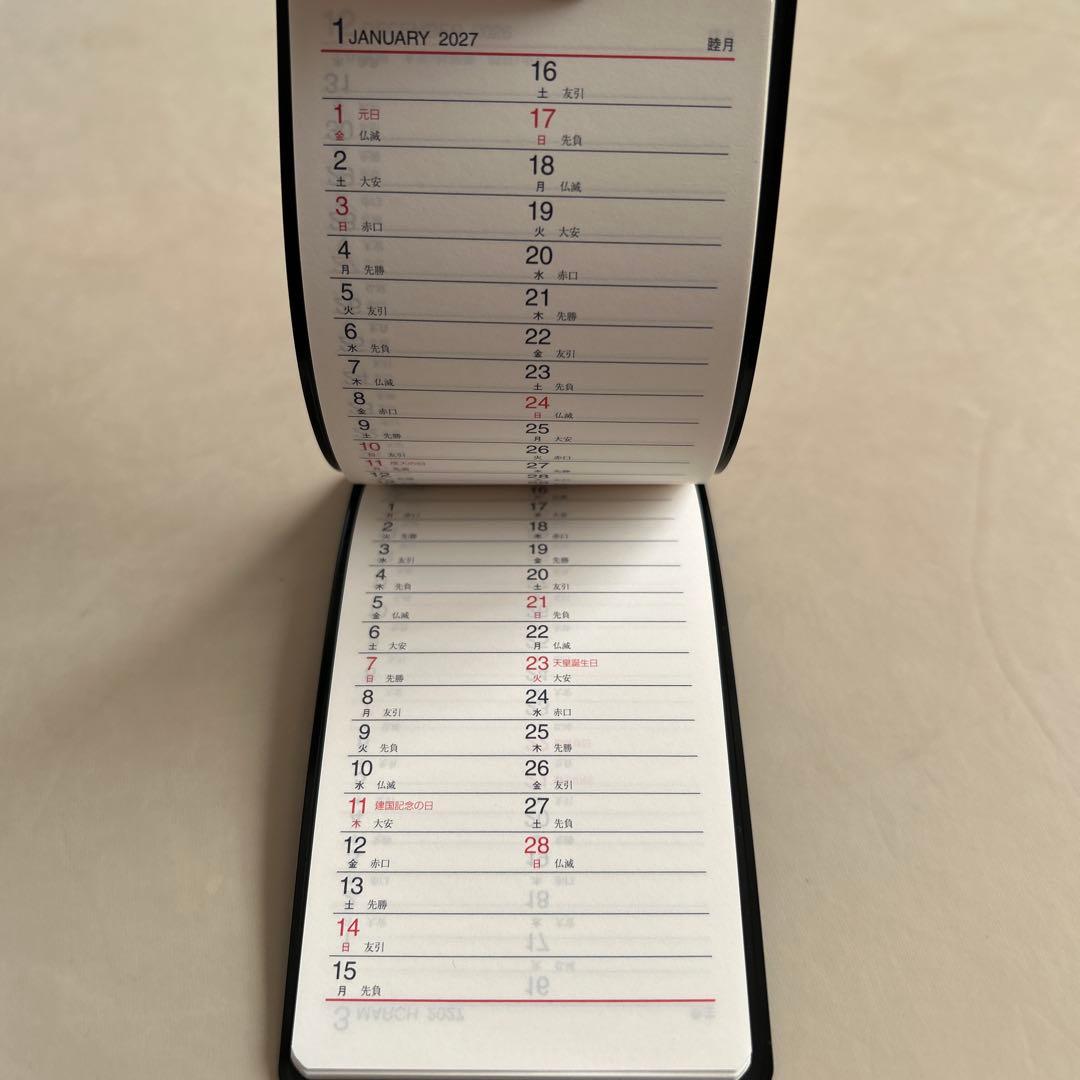 1 JANUARY 2027 睦月
16
土 友引
1 元日
金 仏滅
17
日 先負
2
土 大安
18
月 仏滅
3
日 赤口
19
火 大安
4
月 先勝
20
水 赤口
5
火 友引
21
木 先勝
6
水 先負
22
金 友引
7
木 仏滅
23
土 先負
8
金 赤口
24
日 仏滅
9
土 先勝
25
月 大安
10
日 友引
26
火 赤口
11
27
12
28
16
1
月 赤口
17
水 大安
2
火 先勝
18
木 赤口
3
水 友引
19
金 先勝
4
木 先負
20
土 友引
5
金 仏滅
21
日 先負
6
土 大安
22
月 仏滅
7
日 先勝
23 天皇誕生日
火 大安
8
月 友引
24
水 赤口
9
火 先負
25
木 先勝
10
水 仏滅
26
金 友引
11 建国記念の日
木 大安
27
土 先負
12
金 赤口
28
日 仏滅
13
土 先勝
14
日 友引
15
月 先負
3 MARCH 2027